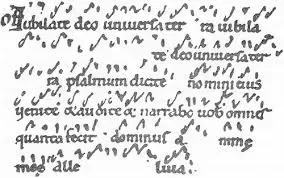 OF Iubilate deo universa ter ra iubila
te deo universa ter
ra psalmum dicite nomini eius
venite & audite & narrabo vob omnes
quanta fecit dominus a nime
meę alle luia.